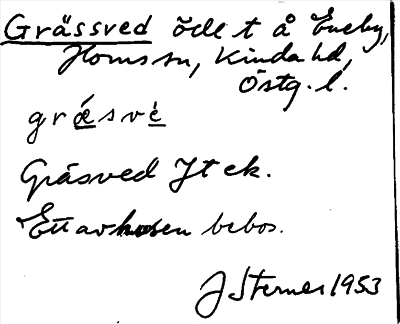 Grässved ödet å Eneby,
Horns sn, Kinda hd,
Östg. l.
grǽsvè
Gräsved Jt ek.
Ett av husen bebos.
J Sterner 1953